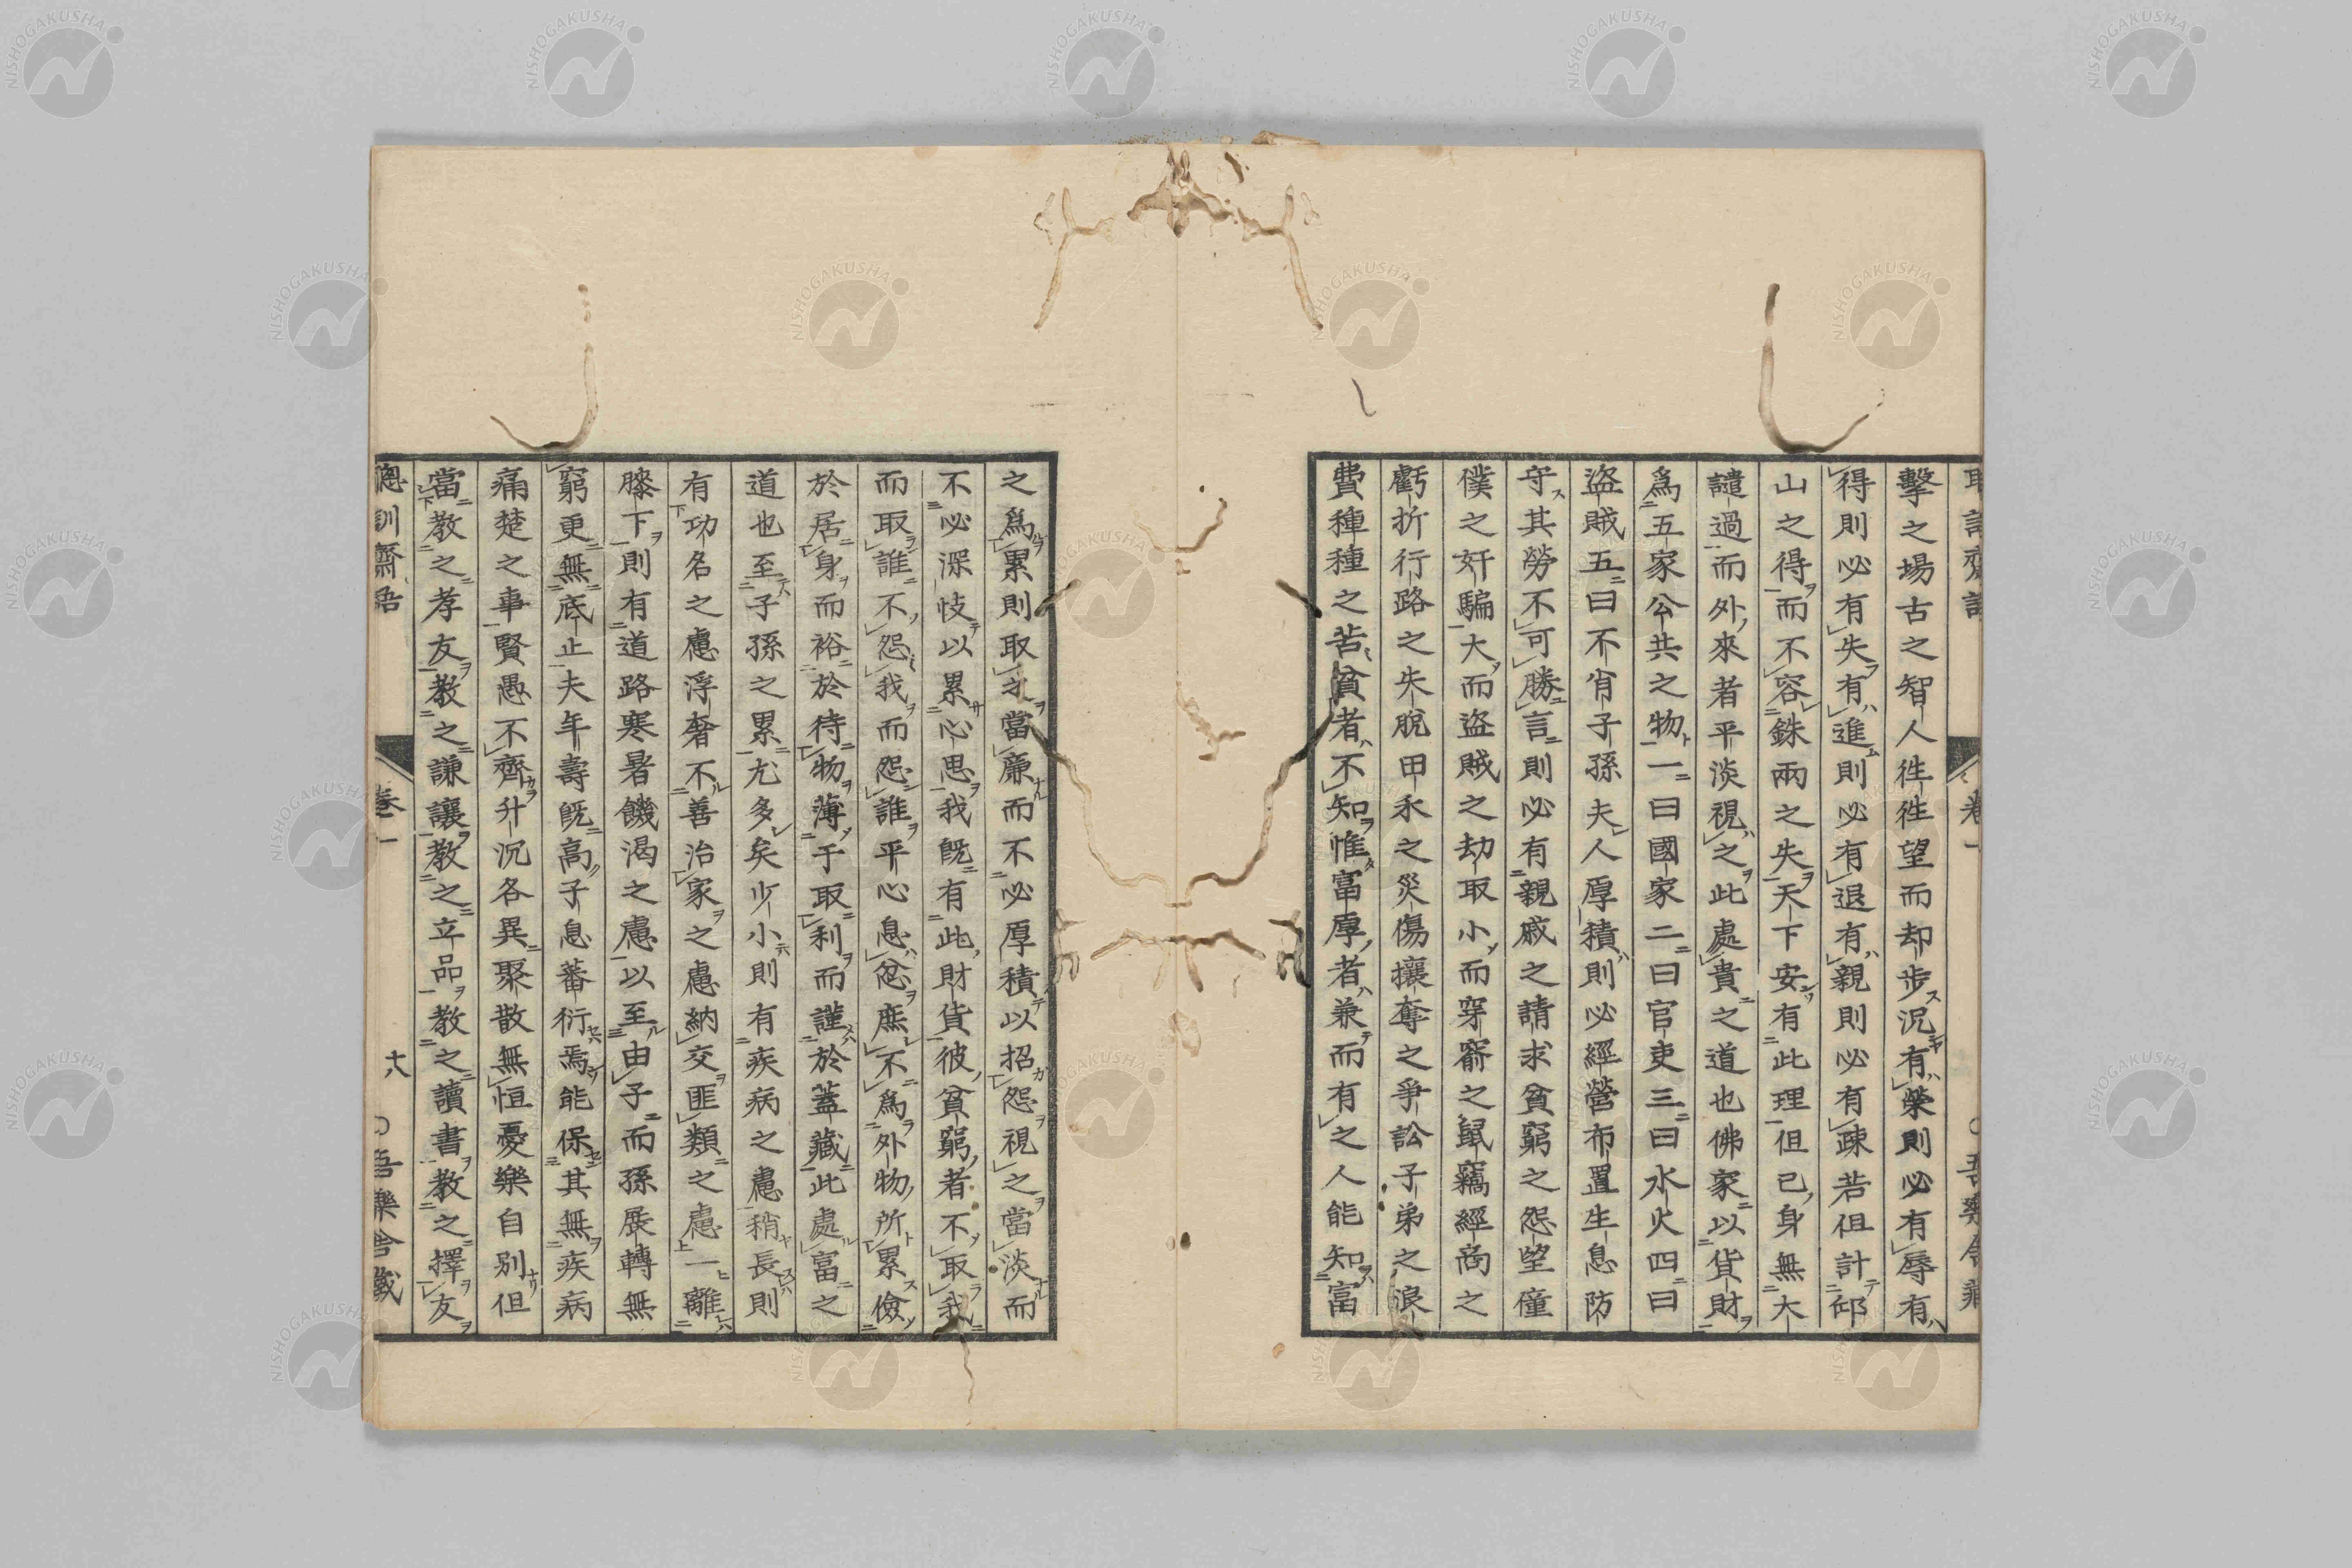 聰訓齋語
卷一
吾樂舎藏
擊之場古之智人徃徃望而却步況有榮則必有辱有
得則必有失有進則必有退有親則必有疎若但計邱
山之得而不容銖兩之失天下安有此理但己身無大
譴過而外來者平淡視之此處貴之道也佛家以貨財
爲五家公共之物一曰國家二曰官吏三曰水火四曰
盜賊五曰不肖子孫夫人厚積則必經營布置生息防
守其勞不可勝言則必有親戚之請求貧窮之怨望僮
僕之奸騙大而盜賊之劫取小而穿窬之鼠竊經商之
虧折行路之失脫田禾之災傷攘奪之爭訟子弟之浪
費種種之苦貧者不知惟富厚者兼而有之人能知富
之爲累則取之當廉而不必厚積以招怨視之當淡而
不必深忮以累心思我既有此財貨彼貧窮者不取我
而取誰不怨我而怨誰平心息忿庶不爲外物所累儉
於居身而裕於待物薄于取利而謹於蓋藏此處富之
道也至子孫之累尤多矣少小則有疾病之慮稍長則
有功名之慮浮奢不善治家之慮納交匪類之慮一離
膝下則有道路寒暑饑渴之慮以至由子而孫展轉無
窮更無底止夫年壽既高子息蕃衍焉能保其無疾病
痛楚之事賢愚不齊升沉各異聚散無恒憂樂自別但
當教之孝友教之謙讓教之立品教之讀書教之擇友
聰訓齋語
卷一
十八
吾樂舎藏